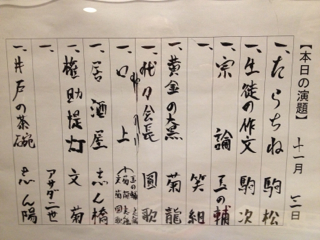 【本日の演題】 十一月 二一日
一、たらちね 駒松
一、生徒の作文 駒次
一、宗論 玉の輔
一、笑組
一、黄金の大黒 菊龍
一、代り会長 圓歌
一、口上
一、居酒屋 志ん橋
一、権助提灯 文菊
一、アサダ二世
一、井戸の茶碗 志ん陽